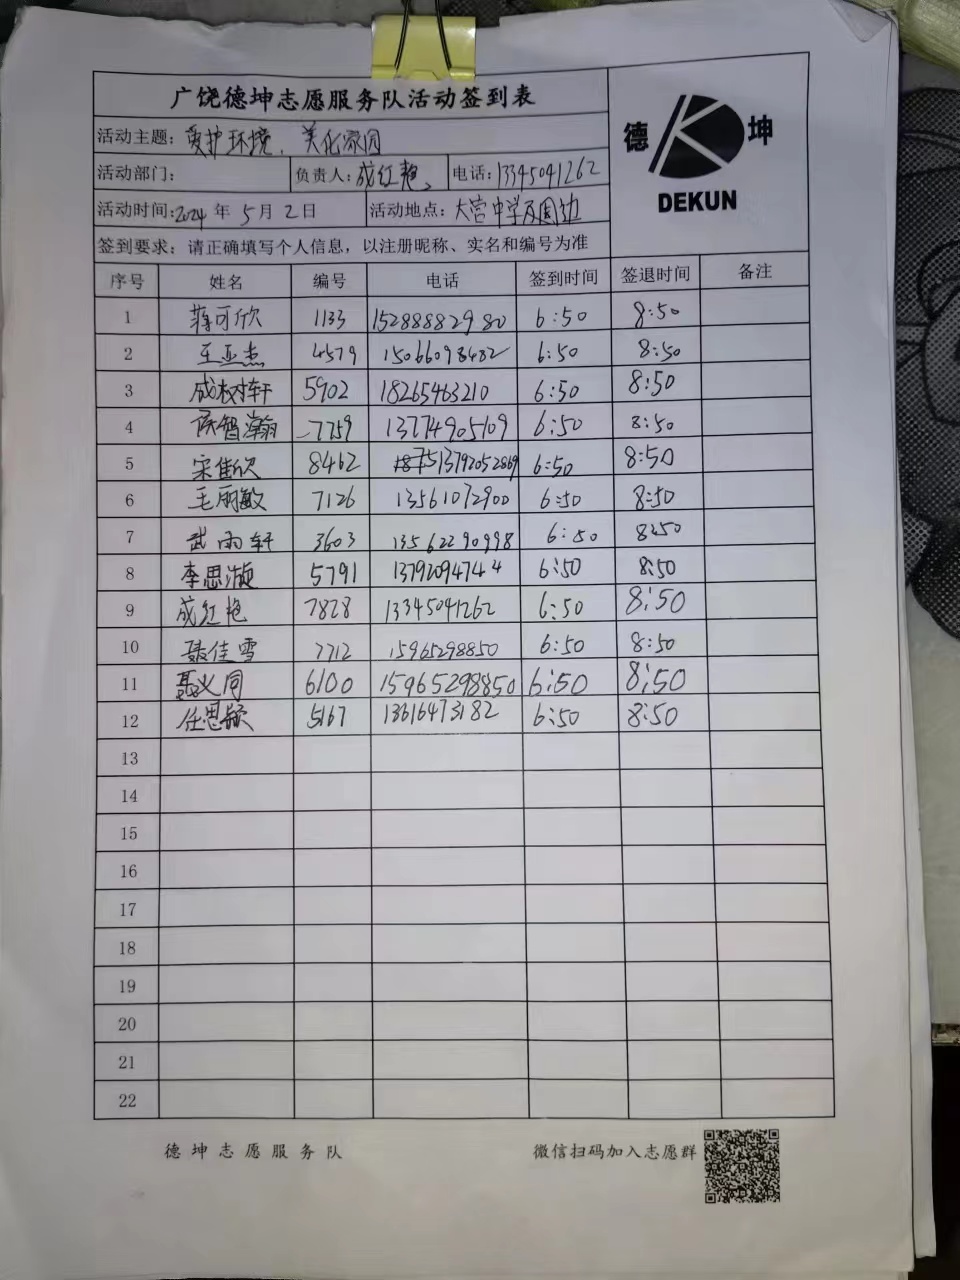 广饶德坤志愿服务队活动签到表
德 坤
DEKUN
活动主题: 爱护环境、美化家园
活动部门: 负责人: 成红艳 电话: 13345041262
活动时间: 2024 年 5 月 2 日 活动地点: 大营中学及周边
签到要求: 请正确填写个人信息，以注册昵称、实名和编号为准
序号 姓名 编号 电话 签到时间 签退时间 备注
1 蒋可欣 1133 15288882980 6:50 8:50
2 王亚杰 4579 15066098432 6:50 8:50
3 成树轩 5902 18265463210 6:50 8:50
4 侯智瀚 7759 13774905109 6:50 8:50
5 宋佳欣 8462 13792052869 6:50 8:50
6 毛丽敏 7126 13561072900 6:50 8:50
7 武雨轩 3603 13562290998 6:50 8:50
8 李思漩 5791 13792094744 6:50 8:50
9 成红艳 7828 13345041262 6:50 8:50
10 聂佳雪 7712 15965298850 6:50 8:50
11 聂义同 6100 15965298850 6:50 8:50
12 任思颖 5167 13616473182 6:50 8:50
13
14
15
16
17
18
19
20
21
22
德坤志愿服务队 微信扫码加入志愿群